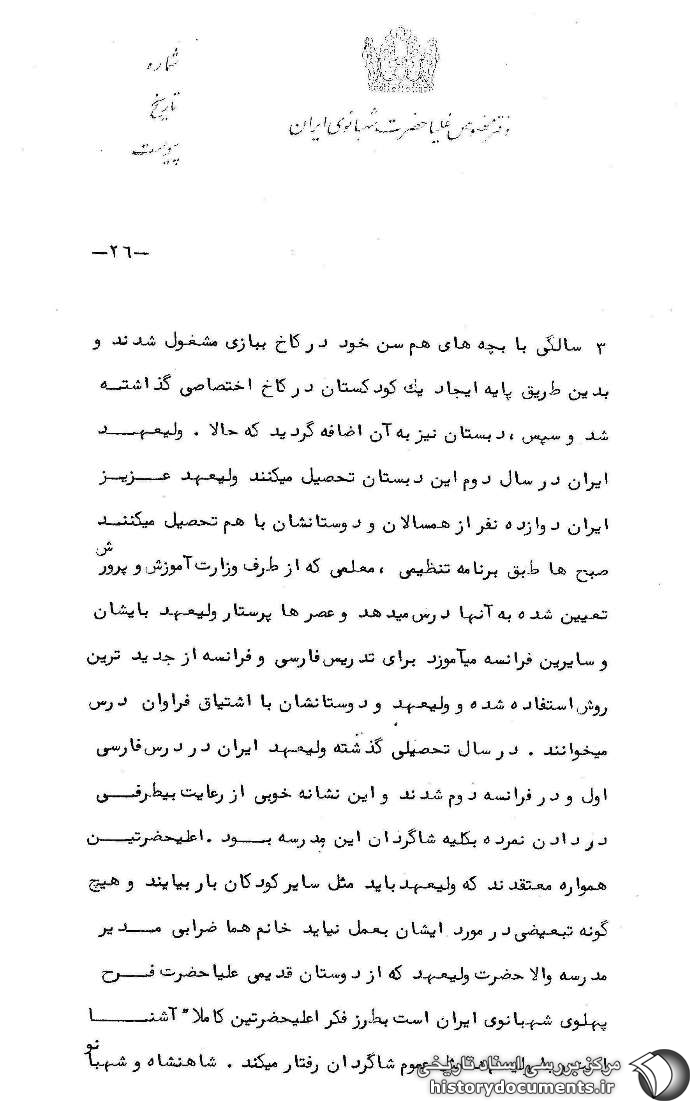 شماره
تاریخ
پیوست
دفتر مخصوص علیاحضرت شهبانوی ایران
—٢٦—
٣ سالگی با بچه های هم سن خود در کاخ ببازی مشغول شدند و
بدین طریق پایه ایجاد یك کودکستان در کاخ اختصاصی گذاشته
شد و سپس ، دبستان نیز به آن اضافه گردید که حالا . ولیعهد
ایران در سال دوم این دبستان تحصیل میکنند ولیعهد عزیز
ایران دوازده نفر از همسالان و دوستانشان با هم تحصیل میکنند
صبح ها طبق برنامه تنظیمی ، معلمی که از طرف وزارت آموزش و پرورش
تعیین شده به آنها درس میدهد و عصر ها پرستار ولیعهد بایشان
و سایرین فرانسه میآموزد برای تدریس فارسی و فرانسه از جدید ترین
روش استفاده شده و ولیعهد و دوستانشان با اشتیاق فراوان درس
میخوانند . در سال تحصیلی گذشته ولیعهد ایران در درس فارسی
اول و در فرانسه دوم شدند و این نشانه خوبی از رعایت بیطرفی
در دادن نمرده بکلیه شاگردان این مدرسه بود . اعلیحضرتین
همواره معتقدند که ولیعهد باید مثل سایر کودکان بار بیایند و هیچ
گونه تبعیضی در مورد ایشان بعمل نیاید خانم هما ضرابی مدیر
مدرسه والا حضرت ولیعهد که از دوستان قدیمی علیاحضرت فرح
پهلوی شهبانوی ایران است بطرز فکر اعلیحضرتین کاملا" آشنا
عموم شاگردان رفتار میکند . شاهنشاه و شهبانو
مرکز بررسی اسناد تاریخی
historydocuments.ir